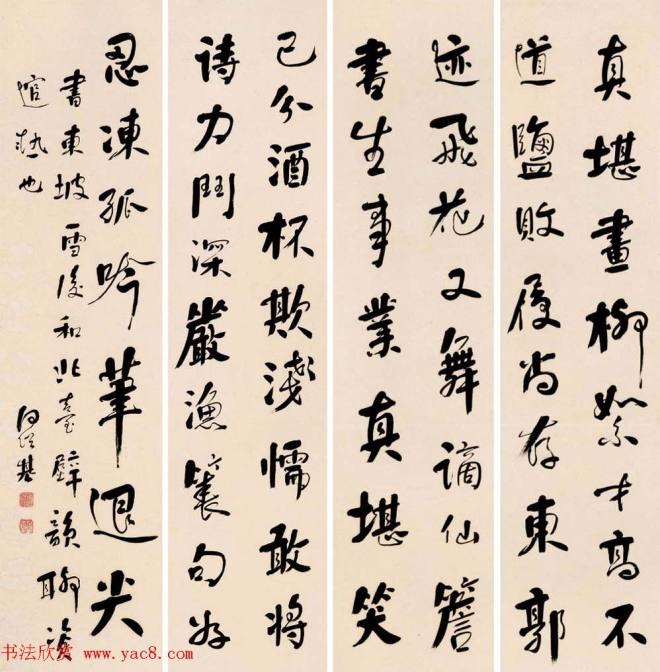 真堪畫柳絮才高不
道鹽敗履尚存東郭
迹飛花又舞謫仙簷
書生事業真堪笑
已分酒杯欺淺懦敢將
詩力鬥深嚴漁簑句好
忍凍孤吟筆退尖
書東坡雪後和北臺壁韻聊資
遣熱也
何紹基
书法欣赏 www.yac8.com